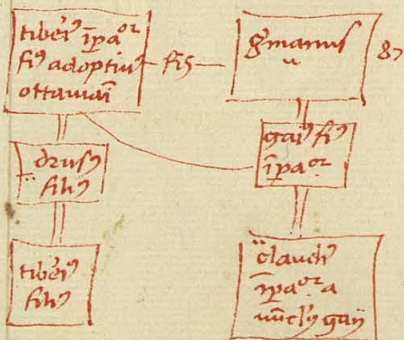 tiberi⁹ īꝑaᵒʳ
fi⁹ adoptiu⁹
ottauiāi
fr̄s
gͥmanus
87
drus⁹
fili⁹
gai⁹ fi⁹
īꝑaᵒʳ
tiberi⁹
fili⁹
claudi⁹
īꝑaᵒʳ a
uūcl⁹ gaij